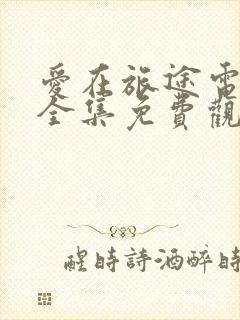 愛在旅途電
全集免費觀
醒時詩酒醉時